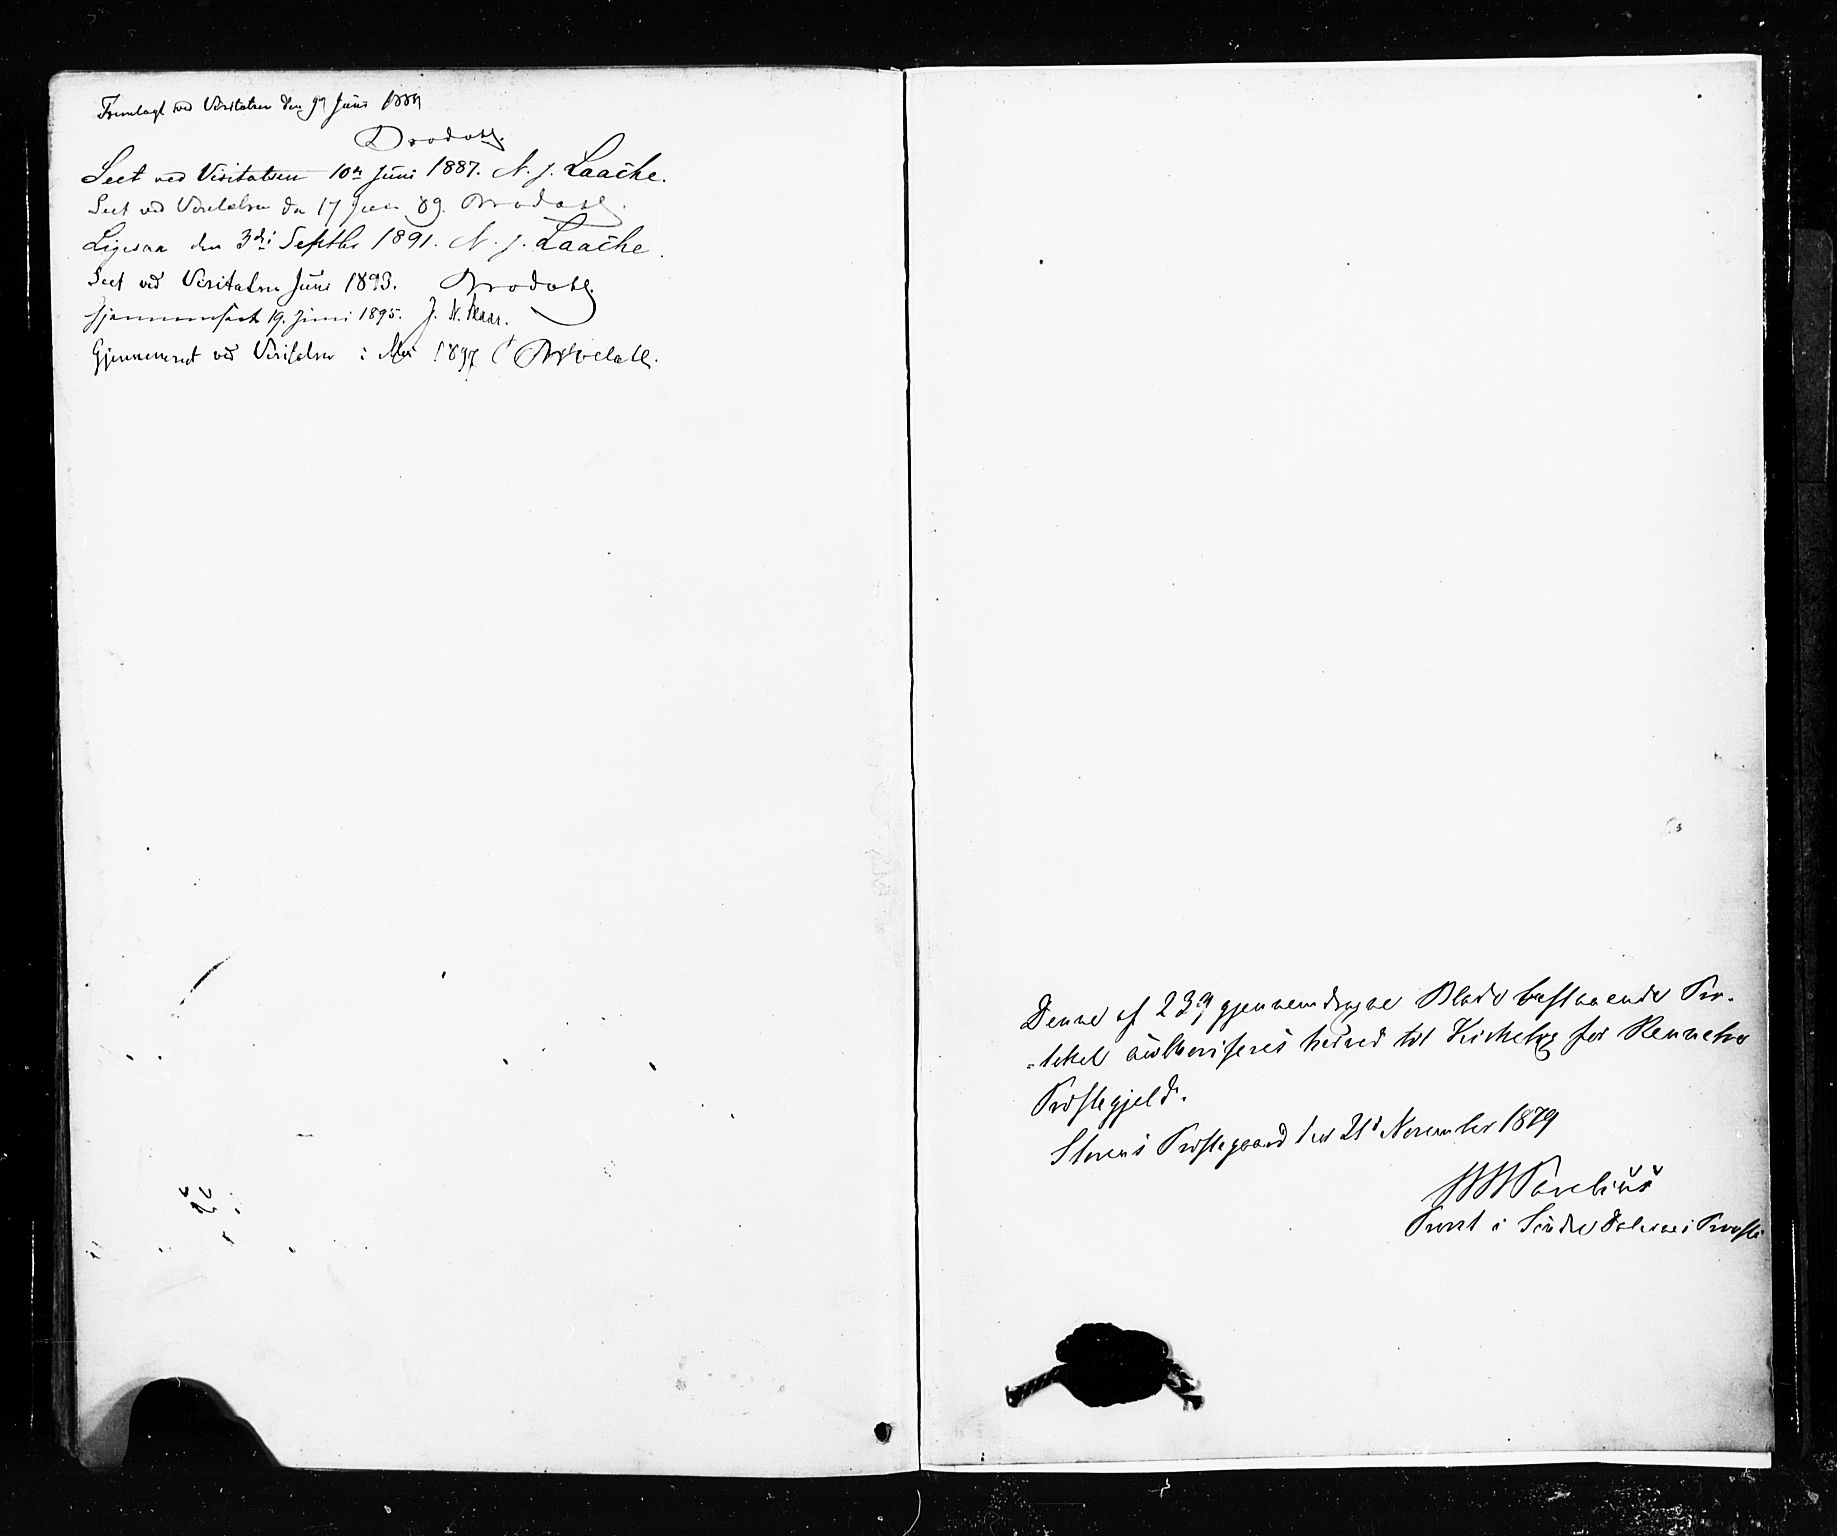 Fremlagt ved Visitatsen den 9de Juni 1884
Brodahl.
Seet ved Visitatsen 10de Juni 1887. N. J. Laache.
Seet ved Visitatsen den 17 Juni 89. Brodahl.
Ligesaa den 3die Septbr 1891. N. J. Laache.
Seet ved Visitatsen Juni 1893. Brodahl.
Gjennemseet 19. Juni 1895. J. N.
Gjennemseet ved Visitatsen i Mai 1897 Brodahl.
Denne af 239 gjennemdragne Blade bestaaende Pro-
-tokol authoriseres herved til Kirkebog for Rennebo
Præstegjeld.
Størens Præstegaard den 21de November 1879
Parelius
Provst i Søndre Dalernes Provsti